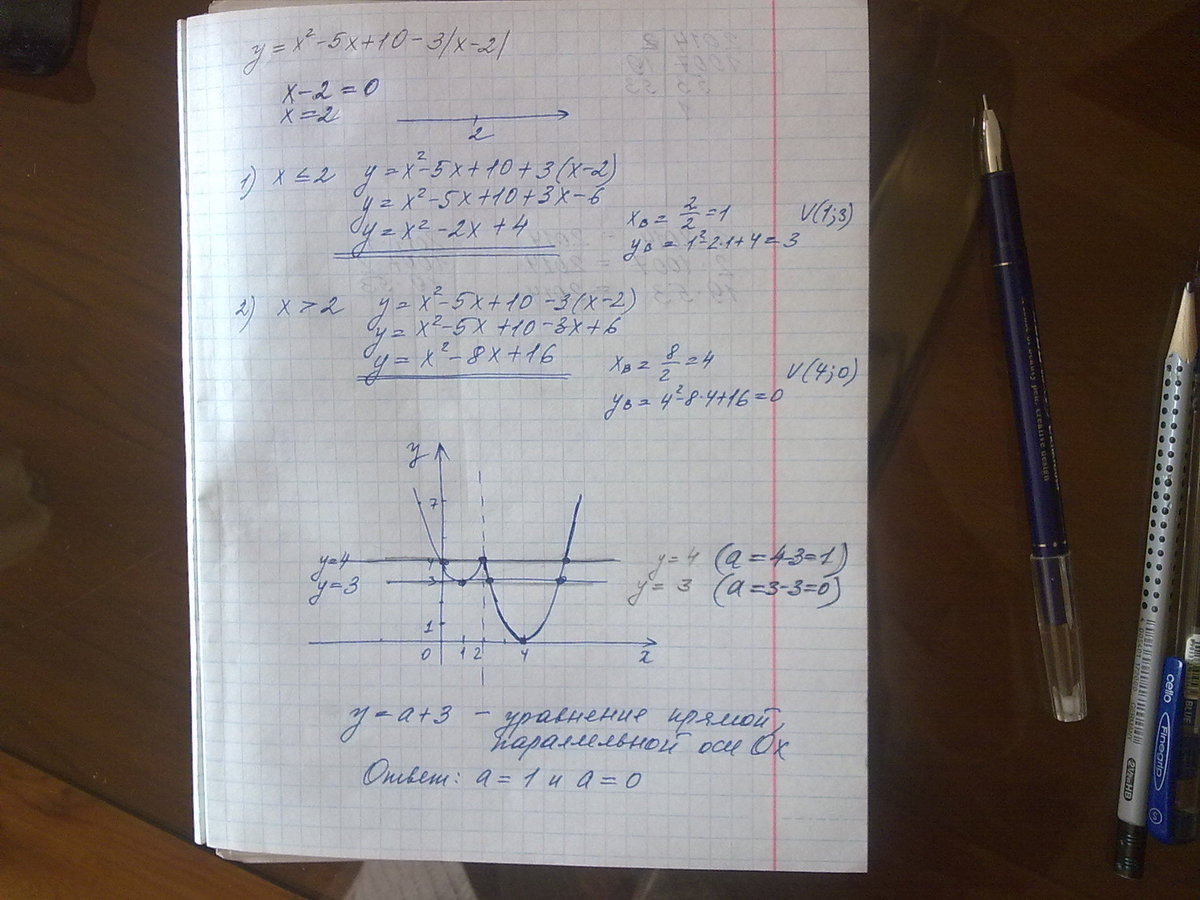 y = x² - 5x + 10 - 3|x - 2|
x - 2 = 0
x = 2
2
1) x ≤ 2 y = x² - 5x + 10 + 3(x - 2)
y = x² - 5x + 10 + 3x - 6
y = x² - 2x + 4
xв = 2/2 = 1 V(1;3)
yв = 1² - 2·1 + 4 = 3
2) x > 2 y = x² - 5x + 10 - 3(x - 2)
y = x² - 5x + 10 - 3x + 6
y = x² - 8x + 16
xв = 8/2 = 4 V(4;0)
yв = 4² - 8·4 + 16 = 0
y
7
y=4 4 y = 4 (a = 4-3 = 1)
y=3 3 y = 3 (a = 3-3 = 0)
1
0 1 2 4 x
y = a + 3 – уравнение прямой,
параллельной оси Ox
Ответ: a = 1 и a = 0
cello
Finegrip
BLUE
2½=HB